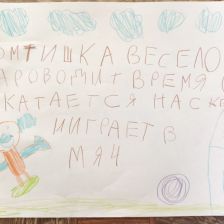 ОМТИШКА ВЕСЕЛО
АРОВОДИТ ВРЕМЯ
КАТАЕТСЯ НАСКО
ИИГРАЕТ В
МЯЧ